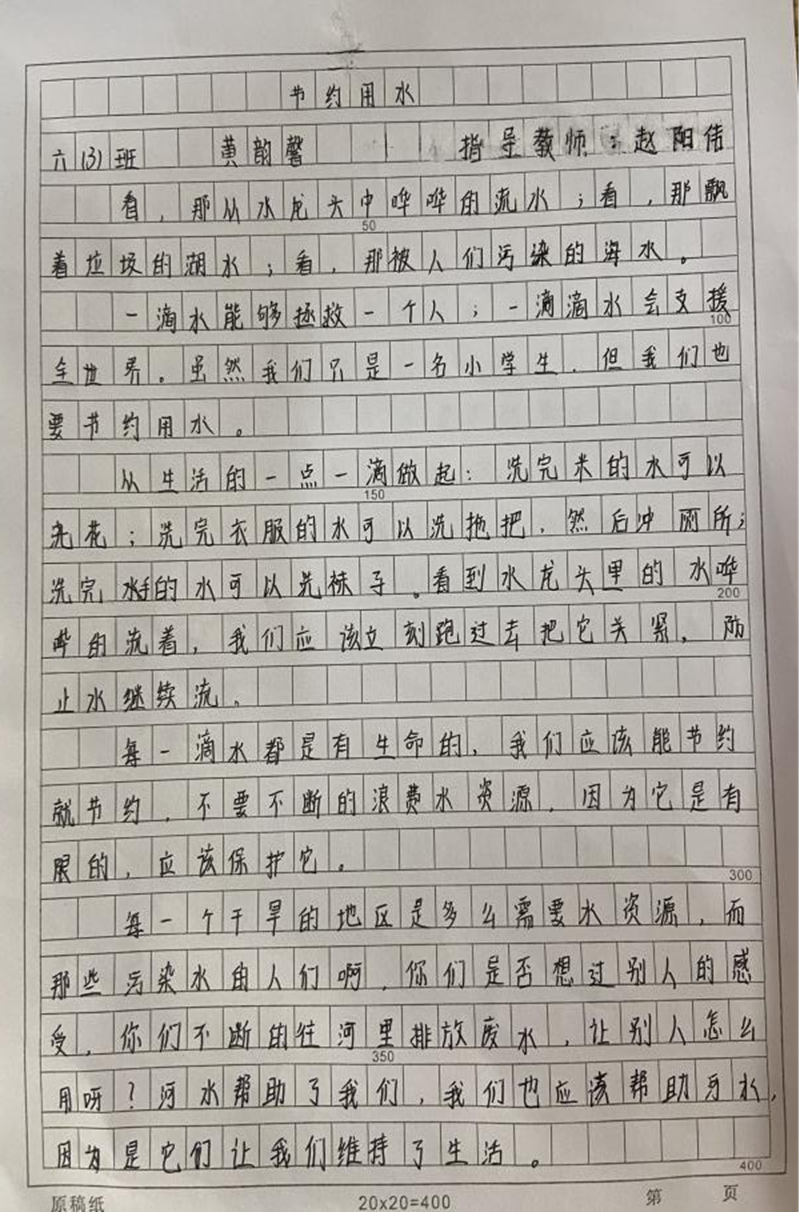 节约用水
六(3)班 黄韵馨 指导教师:赵阳伟
看,那从水龙头中哗哗的流水;看,那飘
50
着垃圾的湖水;看,那被人们污染的海水。
一滴水能够拯救一个人;一滴滴水会支援
100
全世界。虽然我们只是一名小学生,但我们也
要节约用水。
从生活的一点一滴做起:洗完米的水可以
150
浇花;洗完衣服的水可以洗拖把,然后冲厕所;
洗完手的水可以洗袜子。看到水龙头里的水哗
200
哗的流着,我们应该立刻跑过去把它关紧,防
止水继续流。
每一滴水都是有生命的,我们应该能节约
就节约,不要不断的浪费水资源,因为它是有
限的,应该保护它。
300
每一个干旱的地区是多么需要水资源,而
那些污染水的人们啊,你们是否想过别人的感
受,你们不断的往河里排放废水,让别人怎么
350
用呀?河水帮助了我们,我们也应该帮助河水,
因为是它们让我们维持了生活。
400
原稿纸 20x20=400 第 页